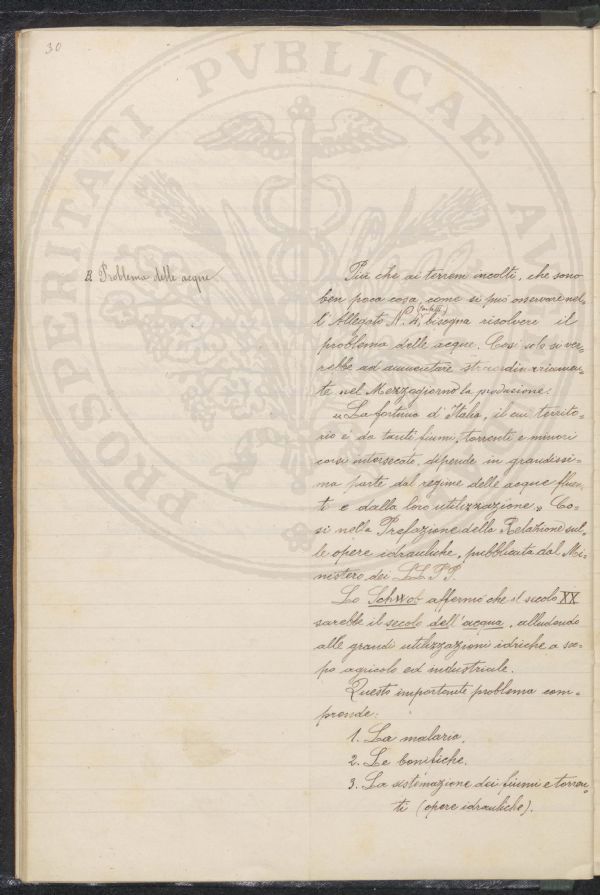 30
B. Problema delle acque
Più che ai terreni incolti, che sono
ben poca cosa, come si può osservare nel=
l'Allegato N. 4, bisogna risolvere il
problema delle acque. Così solo si ver=
rebbe ad aumentare straordinariamen=
te nel Mezzogiorno la produzione.
"La fortuna d'Italia, il cui territo=
rio è da tanti fiumi, torrenti e minori
corsi intersecato, dipende in grandissi=
ma parte dal regime delle acque fluen=
ti e dalla loro utilizzazione". Co=
sì nella Prefazione della Relazione sul=
le opere idrauliche, pubblicata dal Mi=
nistero dei LL. PP.
Lo Schwob affermò che il secolo XX
sarebbe il secolo dell'acqua, alludendo
alle grandi utilizzazioni idriche a sco=
po agricolo ed industriale.
Questo importante problema com=
prende:
1. La malaria.
2. Le bonifiche.
3. La sistemazione dei fiumi e torren=
ti (opere idrauliche).
PROSPERITATI PVBLICAE AVGENDAE